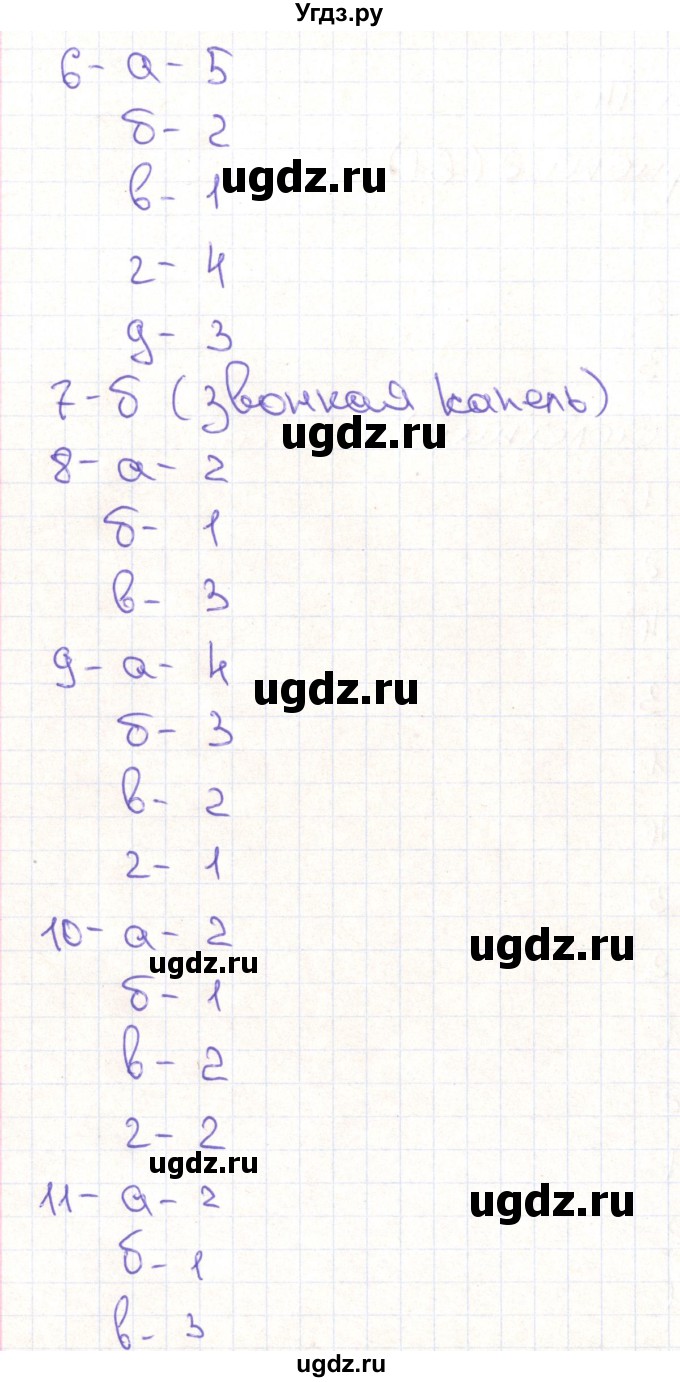 Угдз.ру
6- а- 5
б- 2
ugdz.ru
в- 1
г- 4
д- 3
7-б (звонкая капель)
ugdz.ru
8- а- 2
б- 1
в- 3
9- а- 4
ugdz.ru
б- 3
в- 2
г- 1
10- а- 2
ugdz.ru
ugdz.ru
б- 1
в- 2
г- 2
ugdz.ru
11- а- 2
ugdz.ru
б- 1
в- 3
ugdz.ru